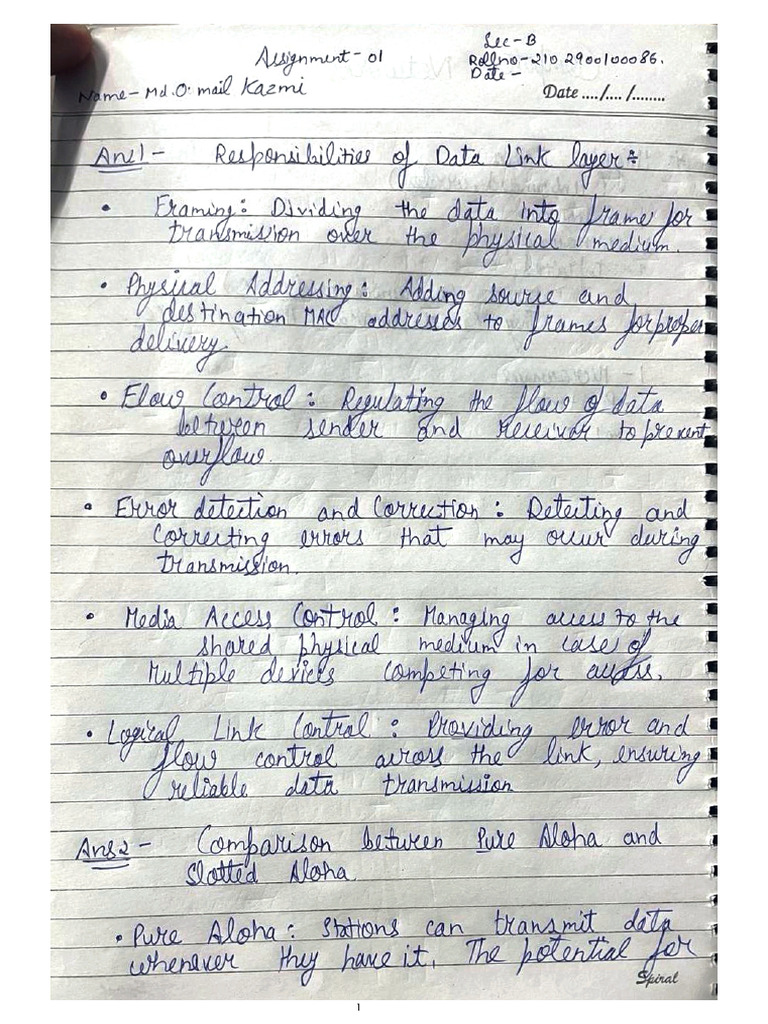 Assignment-01
Sec-B
Rollno-2102900100086.
Date-
Name- Md.O. mail Kazmi
Date ..../..../........
Ans1- Responsibilities of Data Link layer÷
• Framing: Dividing the data into frame for
transmission over the physical medium.
• Physical Addressing: Adding source and
destination MAC addresses to frames for proper
delivery.
• Flow Control: Regulating the flow of data
between sender and receiver to prevent
overflow.
• Error detection and Correction: Detecting and
Correcting errors that may occur during
transmission.
• Media Access Control: Managing access to the
shared physical medium in case of
Multiple devices competing for access.
• Logical Link Control: Providing error and
flow control across the link, ensuring
reliable data transmission
Ans2- Comparison between Pure Aloha and
Slotted Aloha
• Pure Aloha: Stations can transmit data
whenever they have it. The potential for
Spiral
1